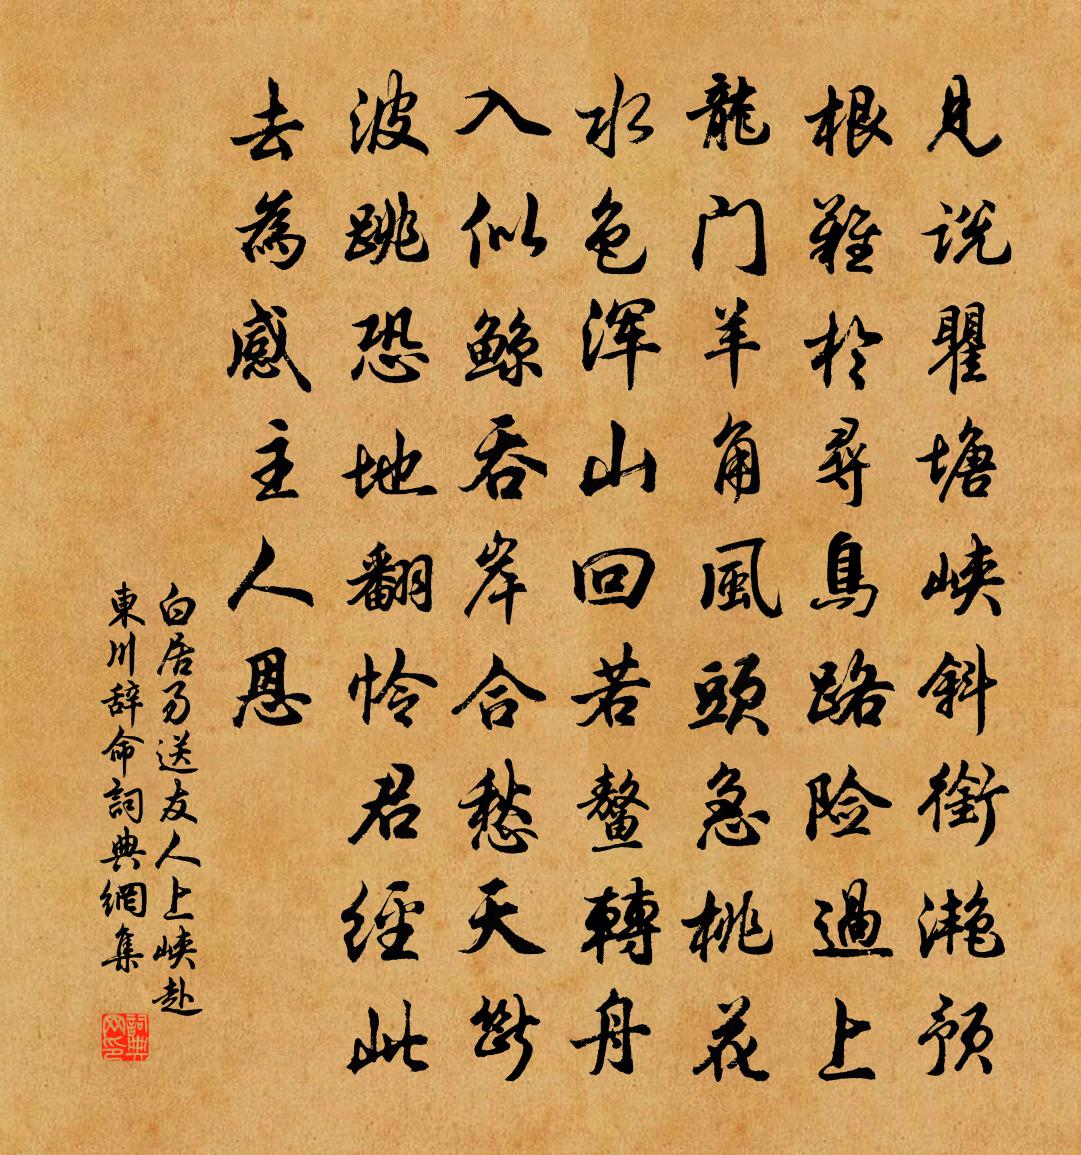 見说瞿塘峡斜銜滟预
根難於尋鳥路险過上
龍门羊角風頭急桃花
水色浑山回若鳌轉舟
入似鲸吞岸合愁天斷
波跳恐地翻怜君经此
去為感主人恩
白居易送友人上峡赴
東川辞命詞典網集
詞典
网印